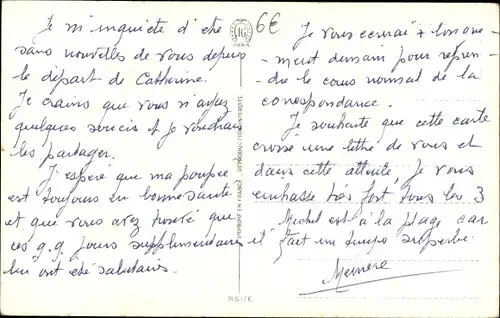 Je m'inquiète d'être
sans nouvelles de vous depuis
le départ de Catherine.
Je crains que vous n'ayez
quelques soucis et je voudrais
les partager.
J'espère que ma poupée
est toujours en bonne santé
et que vous avez trouvé que
ces q.q jours supplémentaires
lui ont été salutaires.
6€
JG
PARIS
IMPRIMÉ EN FRANCE - REPRODUCTION INTERDITE
Je vous écrirai + longue-
-ment demain pour repren-
-dre le cours normal de la
correspondance.
Je souhaite que cette carte
croise une lettre de vous et
dans cette attente, je vous
embrasse très fort tous les 3
Michel est à la plage car
il fait un temps superbe.
Memère
851/6